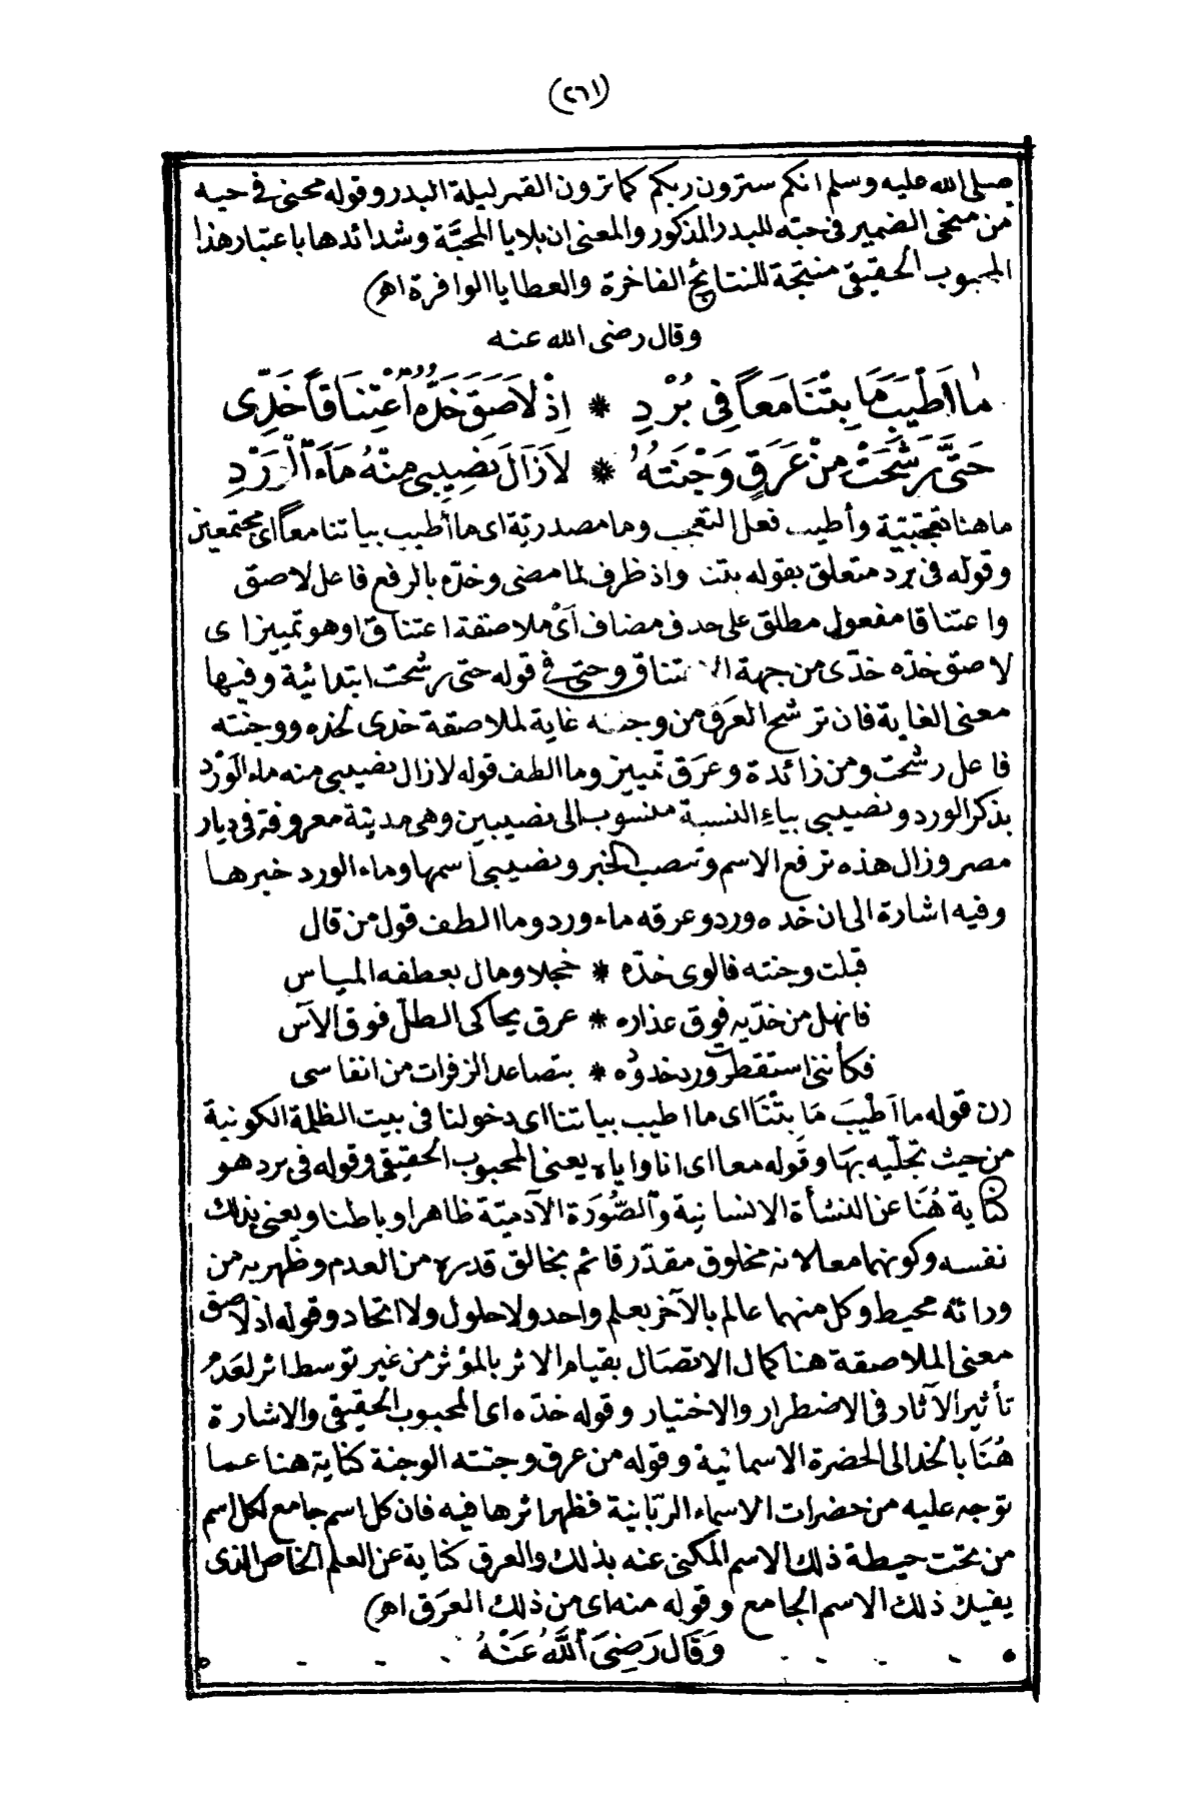 (٢٦١)
صلى الله عليه وسلم انكم سترون ربكم كما ترون القمر ليلة البدر وقوله محنى فى حبه
من منحى الضمير فى حبته للبدر المذكور والمعنى ان بلايا المحبَّة وشدائدها باعتبار هذا
المحبوب الحقيقى منتجة للنتائج الفاخرة والعطايا الوافرة اهـ)
وقال رضى الله عنه
مَا أَطْيَبَ مَا بِتْنَا مَعاً فِى بُرْدِ * اِذْ لاَصَقَ خَدُّهُ اْعْتِنَاقاً خَدِّى
حَتَّى رَشَحَتْ مِنْ عَرَقٍ وَجْنَتُهُ * لاَ زَالَ نَصِيبِى مِنْهُ مَاءَ الْوَرْدِ
ما هنا تعجّبيّة وأطيب فعل التعجب وما مصدريّة اى ما أطيب بياتنا معاً اى مجتمعين
وقوله فى برد متعلق بقوله بتنا واذ ظرف لما مضى وخدّه بالرفع فاعل لاصق
واعتناقا مفعول مطلق على حذف مضاف أىْ ملاصقة اعتناق او هو تمييز اى
لاصق خدّه خدّى من جهة الاعتناق وحتى فى قوله حتى رشحت ابتدائية وفيها
معنى الغاية فان ترشح العَرَق من وجنته غاية لملاصقة خدى لخده ووجنته
فاعل رشحت ومن زائدة وعرَق تمييز وما الطف قوله لا زال نصيبى منه ماء الوَرْد
بذكر الورد ونصيبى بياءِ النسبة منسوب الى نصيبين وهى مدينة معروفة فى ديار
مصر وزال هذه ترفع الاسم وتنصب الخبر ونصيبى اسمها وماء الورد خبرها
وفيه اشارة الى ان خدّه ورد وعرقه ماء ورد وما الطف قول من قال
قبلت وجنته فالوى خدّه * خجلا ومال بعطفه المياس
فانهل من خدّيه فوق عذاره * عرق يحاكى الطلّ فوق الآس
فكأننى استقطرت ورد خدوده * بتصاعد الزفرات من انفاسى
(ن قوله ما أَطْيَبَ مَا بِتْنَا اى ما اطيب بياتنا اى دخولنا فى بيت الظلمة الكونية
من حيث تجلّيه بهَا وقوله معا اى انا واياه يعنى المحبوب الحقيقى وقوله فى برد هو
كناية هُنَا عن النشأة الانسانية وَالصُّورَة الآدميّة ظاهرا وباطنا ويعنى بذلك
نفسه وكونهما معا لانه مخلوق مقدّر قائم بخالق قديره من العدم وظهر به من
ورائه محيط وكل منهما عالم بالآخر بعلم واحد ولا حلول ولا اتحاد وقوله اذ لاصق
معنى الملاصقة هنا كمال الاتصال بقيام الاثر بالمؤثر من غير توسط اثر لعَدم
تأثير الآثار فى الاضطرار والاختيار وقوله خدّه اى المحبوب الحقيقى والاشارة
هُنَا بالخد الى الحضرة الاسمائية وقوله من عرق وجنته الوجنة كناية هنا عما
توجه عليه من حضرات الاسماء الربّانية فظهر اثرها فيه فان كل اسم جامع لكل اسم
من تحت حيطة ذلك الاسم المكنى عنه بذلك والعرق كناية عن العلم الخاص الذى
يفيدك ذلك الاسم الجامع وقوله منه اى من ذلك العرَق اهـ)
وَقَالَ رَضِىَ اللهُ عَنْهُ